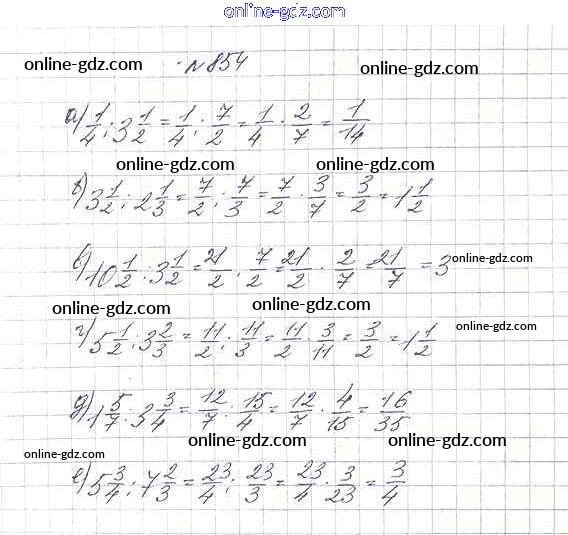 online-gdz.com
online-gdz.com №854 online-gdz.com
а) 1/4 : 3 1/2 = 1/4 : 7/2 = 1/4 · 2/7 = 1/14
online-gdz.com online-gdz.com
б) 3 1/2 : 2 1/3 = 7/2 : 7/3 = 7/2 · 3/7 = 3/2 = 1 1/2
в) 10 1/2 : 3 1/2 = 21/2 : 7/2 = 21/2 · 2/7 = 21/7 = 3 online-gdz.com
online-gdz.com online-gdz.com
г) 5 1/2 : 3 2/3 = 11/2 : 11/3 = 11/2 · 3/11 = 3/2 = 1 1/2 online-gdz.com
д) 1 5/7 : 3 3/4 = 12/7 : 15/4 = 12/7 · 4/15 = 16/35
online-gdz.com online-gdz.com online-gdz.com
е) 5 3/4 : 7 2/3 = 23/4 : 23/3 = 23/4 · 3/23 = 3/4
online-gdz.com online-gdz.com online-gdz.com